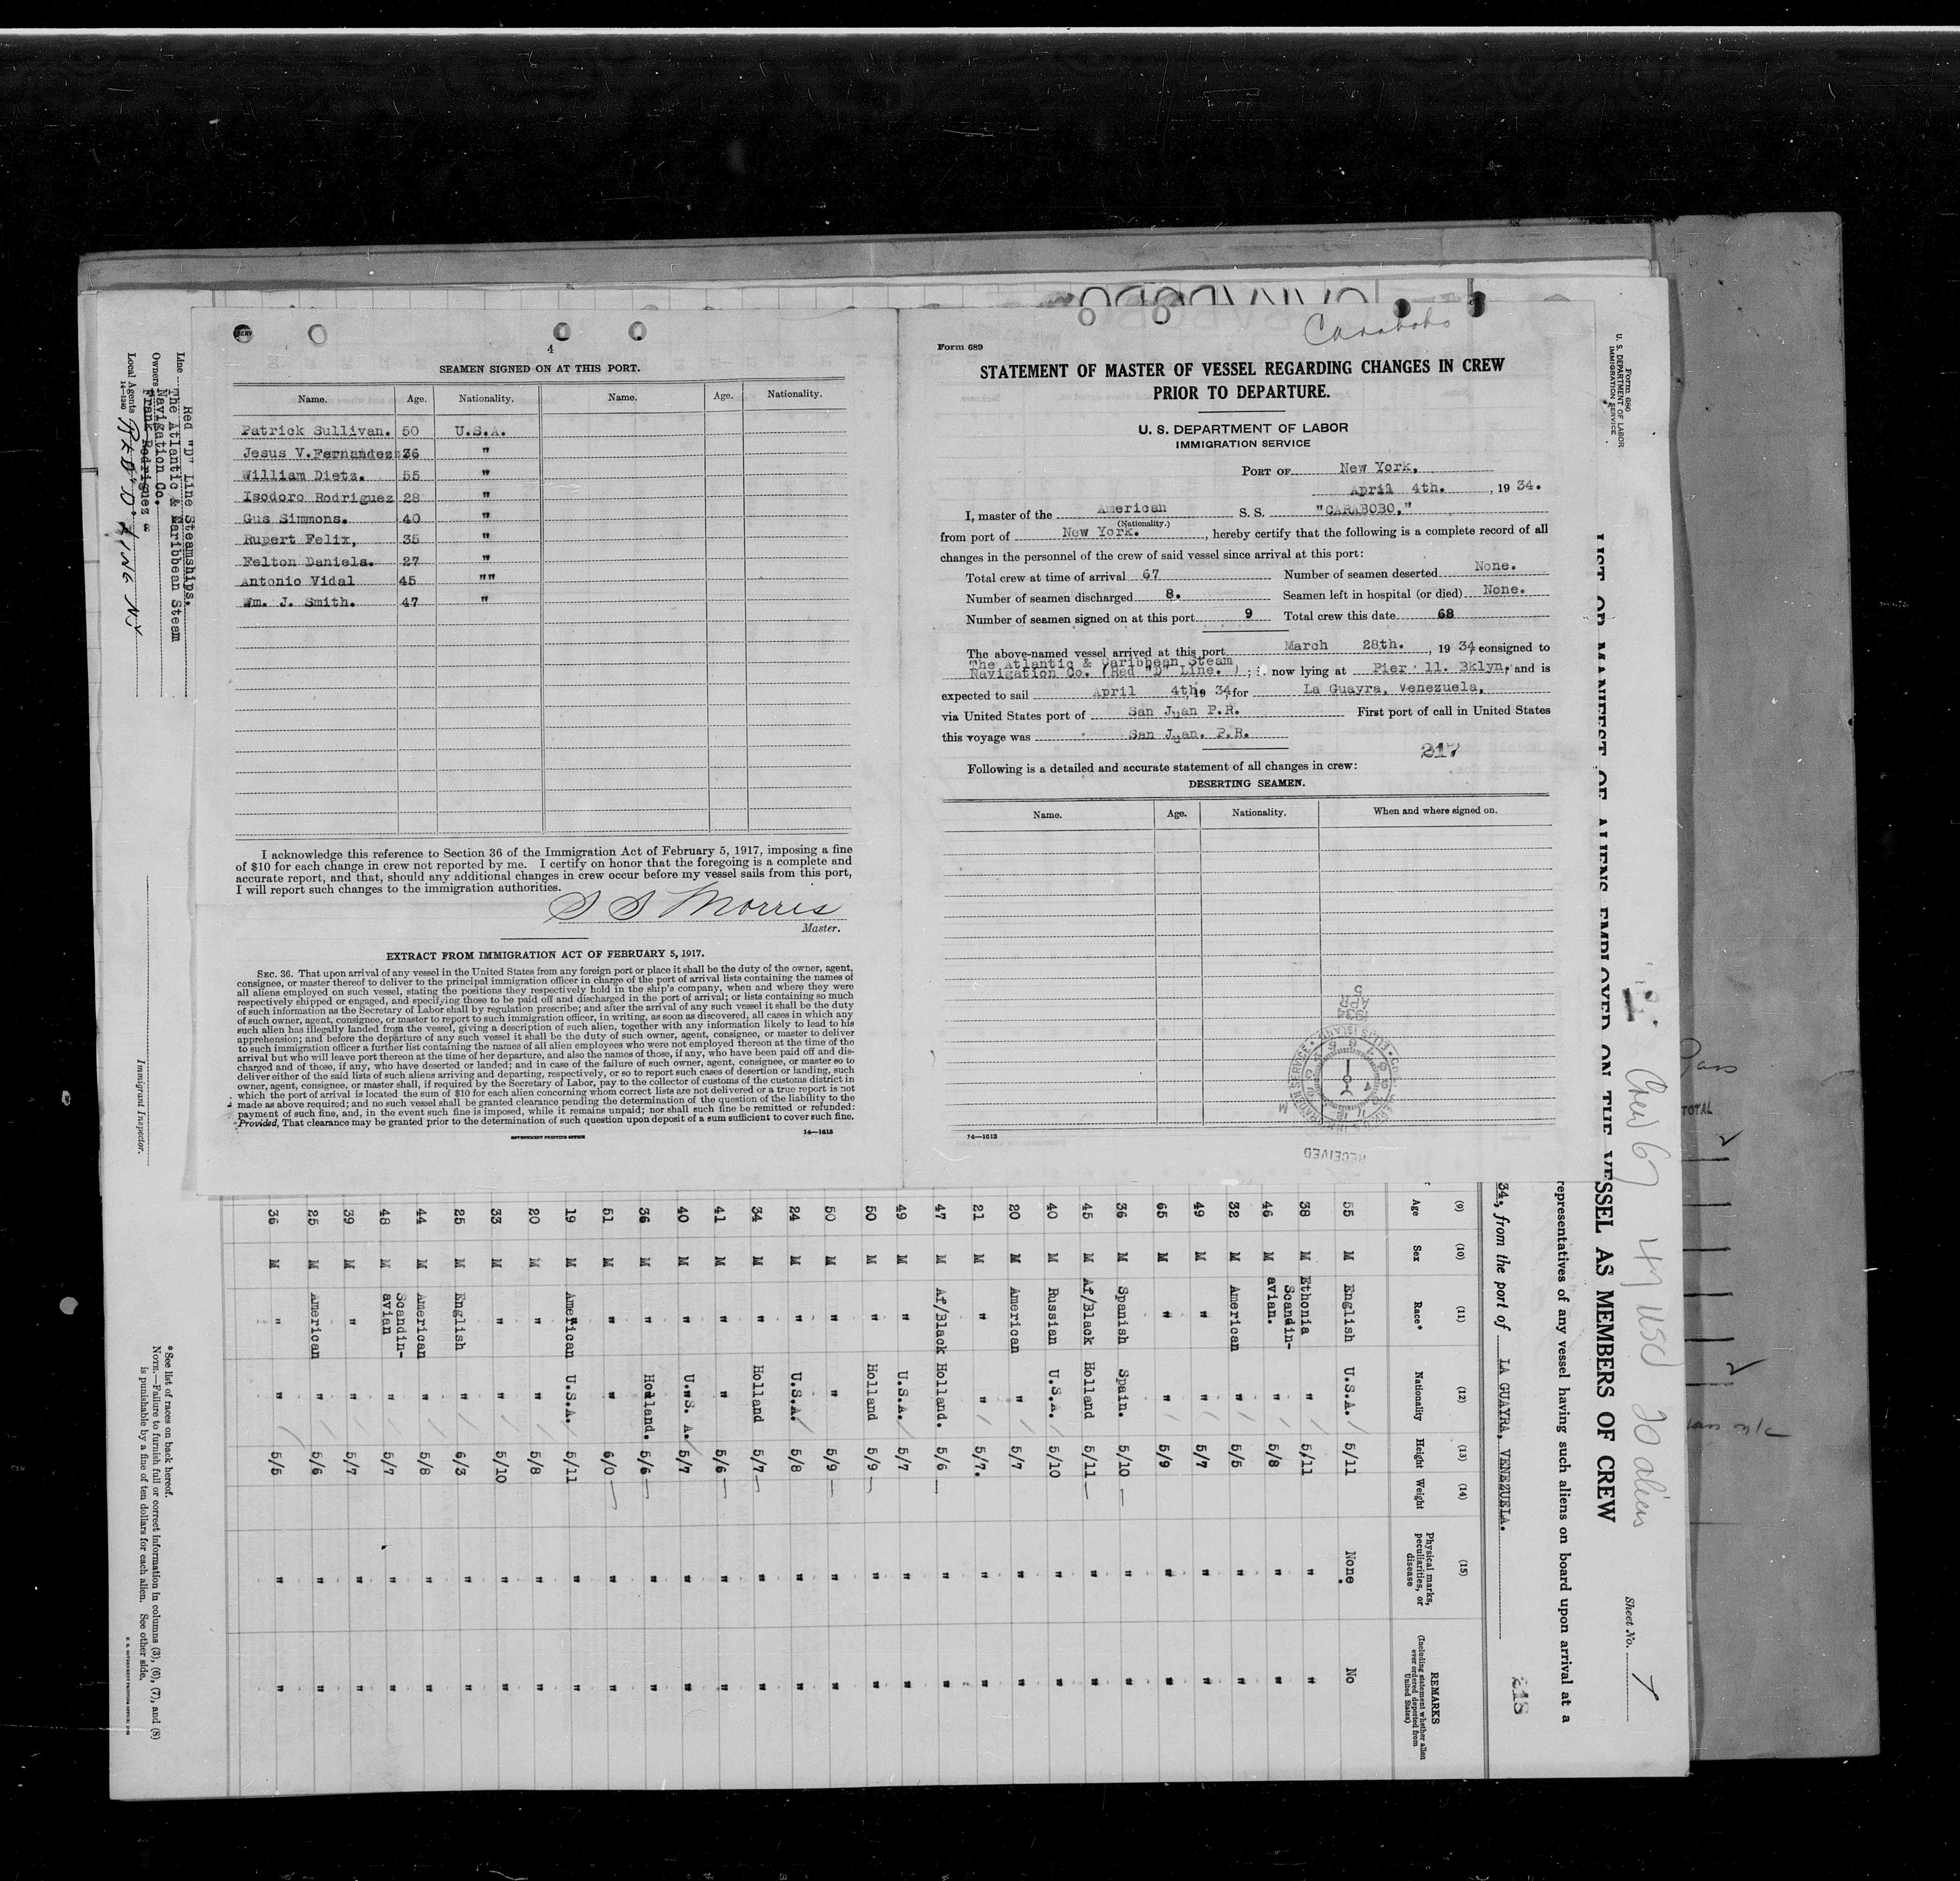 4
SEAMEN SIGNED ON AT THIS PORT.
Name. Age. Nationality. Name. Age. Nationality.
Patrick Sullivan. 50 U.S.A.
Jesus V.Fernandezz 36 "
William Dietz. 55 "
Isodoro Rodriguez 28 "
Gus Simmons. 40 "
Rupert Felix, 35 "
Felton Daniels. 27 "
Antonio Vidal 45 ""
Wm. J. Smith. 47 "
I acknowledge this reference to Section 36 of the Immigration Act of February 5, 1917, imposing a fine
of $10 for each change in crew not reported by me. I certify on honor that the foregoing is a complete and
accurate report, and that, should any additional changes in crew occur before my vessel sails from this port,
I will report such changes to the immigration authorities.
S S Morris
Master.
EXTRACT FROM IMMIGRATION ACT OF FEBRUARY 5, 1917.
SEC. 36. That upon arrival of any vessel in the United States from any foreign port or place it shall be the duty of the owner, agent,
consignee, or master thereof to deliver to the principal immigration officer in charge of the port of arrival lists containing the names of
all aliens employed on such vessel, stating the positions they respectively hold in the ship's company, when and where they were
respectively shipped or engaged, and specifying those to be paid off and discharged in the port of arrival; or lists containing so much
of such information as the Secretary of Labor shall by regulation prescribe; and after the arrival of any such vessel it shall be the duty
of such owner, agent, consignee, or master to report to such immigration officer, in writing, as soon as discovered, all cases in which any
such alien has illegally landed from the vessel, giving a description of such alien, together with any information likely to lead to his
apprehension; and before the departure of any such vessel it shall be the duty of such owner, agent, consignee, or master to deliver
to such immigration officer a further list containing the names of all alien employees who were not employed thereon at the time of the
arrival but who will leave port thereon at the time of her departure, and also the names of those, if any, who have been paid off and dis-
charged and of those, if any, who have deserted or landed; and in case of the failure of such owner, agent, consignee, or master so to
deliver either of the said lists of such aliens arriving and departing, respectively, or so to report such cases of desertion or landing, such
owner, agent, consignee, or master shall, if required by the Secretary of Labor, pay to the collector of customs of the customs district in
which the port of arrival is located the sum of $10 for each alien concerning whom correct lists are not delivered or a true report is not
made as above required; and no such vessel shall be granted clearance pending the determination of the question of the liability to the
payment of such fine, and, in the event such fine is imposed, while it remains unpaid; nor shall such fine be remitted or refunded:
Provided, That clearance may be granted prior to the determination of such question upon deposit of a sum sufficient to cover such fine.
GOVERNMENT PRINTING OFFICE 14—1613
Carabobo
Form 689
STATEMENT OF MASTER OF VESSEL REGARDING CHANGES IN CREW
PRIOR TO DEPARTURE.
U. S. DEPARTMENT OF LABOR
IMMIGRATION SERVICE
PORT OF New York,
April 4th. , 19 34.
I, master of the American S. S. "CARABOBO,"
(Nationality.)
from port of New York. , hereby certify that the following is a complete record of all
changes in the personnel of the crew of said vessel since arrival at this port:
Total crew at time of arrival 67 Number of seamen deserted None.
Number of seamen discharged 8. Seamen left in hospital (or died) None.
Number of seamen signed on at this port 9 Total crew this date 68
The above-named vessel arrived at this port March 28th. , 19 34, consigned to
The Atlantic & Caribbean Steam
Navigation Co. (Red "D" Line. ) ; now lying at Pier 11. Bklyn, and is
expected to sail April 4th, 19 34, for La Guayra, Venezuela,
via United States port of San Juan P.R. First port of call in United States
this voyage was San Juan. P.R.
217
Following is a detailed and accurate statement of all changes in crew:
DESERTING SEAMEN.
Name. Age. Nationality. When and where signed on.
1934
APR
5
RECEIVED
14—1613
Line Red "D" Line Steamships.
Owners The Atlantic & Caribbean Steam
Navigation Co.
Local Agents Frank Rodriguez "
RED "D" LINE NY
14—1240
Immigrant Inspector.
Form 680
U. S. DEPARTMENT OF LABOR
IMMIGRATION SERVICE
LIST OR MANIFEST OF ALIENS EMPLOYED ON THE VESSEL AS MEMBERS OF CREW
Crew 67 47 USC 20 aliens
Sheet No. 1
representatives of any vessel having such aliens on board upon arrival at a
34., from the port of LA GUAYRA, VENEZUELA.
218
(9) (10) (11) (12) (13) (14) (15)
Age Sex Race* Nationality Height Weight Physical marks, peculiarities, or disease REMARKS (Including statement whether alien ever ordered deported from United States)
55 M English U.S.A. 5/11 None. No
38 M Ethonia " 5/11 " "
46 M Scandin-avian. " 5/8 " "
32 M American " 5/5 " "
49 M " " 5/7 " "
65 M " " 5/9 " "
36 M Spanish Spain. 5/10 " "
45 M Af/Black Holland 5/11 " "
40 M Russian U.S.A. 5/10 " "
20 M American " 5/7 " "
21 M " " 5/7. " "
47 M Af/Black Holland. 5/6 " "
49 M " U.S.A. 5/7 " "
50 M " Holland 5/9 " "
50 M " " 5/9 " "
24 M " U.S.A. 5/8 " "
34 M " Holland 5/7 " "
41 M " " 5/6 " "
40 M " U.S. A. 5/7 " "
36 M " Holland. 5/6 " "
51 M " " 6/0 " "
19 M American U.S.A. 5/11 " "
20 M " " 5/8 " "
33 M " " 5/10 " "
25 M English " 6/3 " "
44 M American " 5/8 " "
48 M Scandin-avian " 5/7 " "
39 M " " 5/7 " "
25 M American " 5/6 " "
36 M " " 5/5 " "
* See list of races on back hereof.
NOTE.—Failure to furnish full or correct information in columns (3), (6), (7), and (8)
is punishable by a fine of ten dollars for each alien. See other side.
Pass
TOTAL